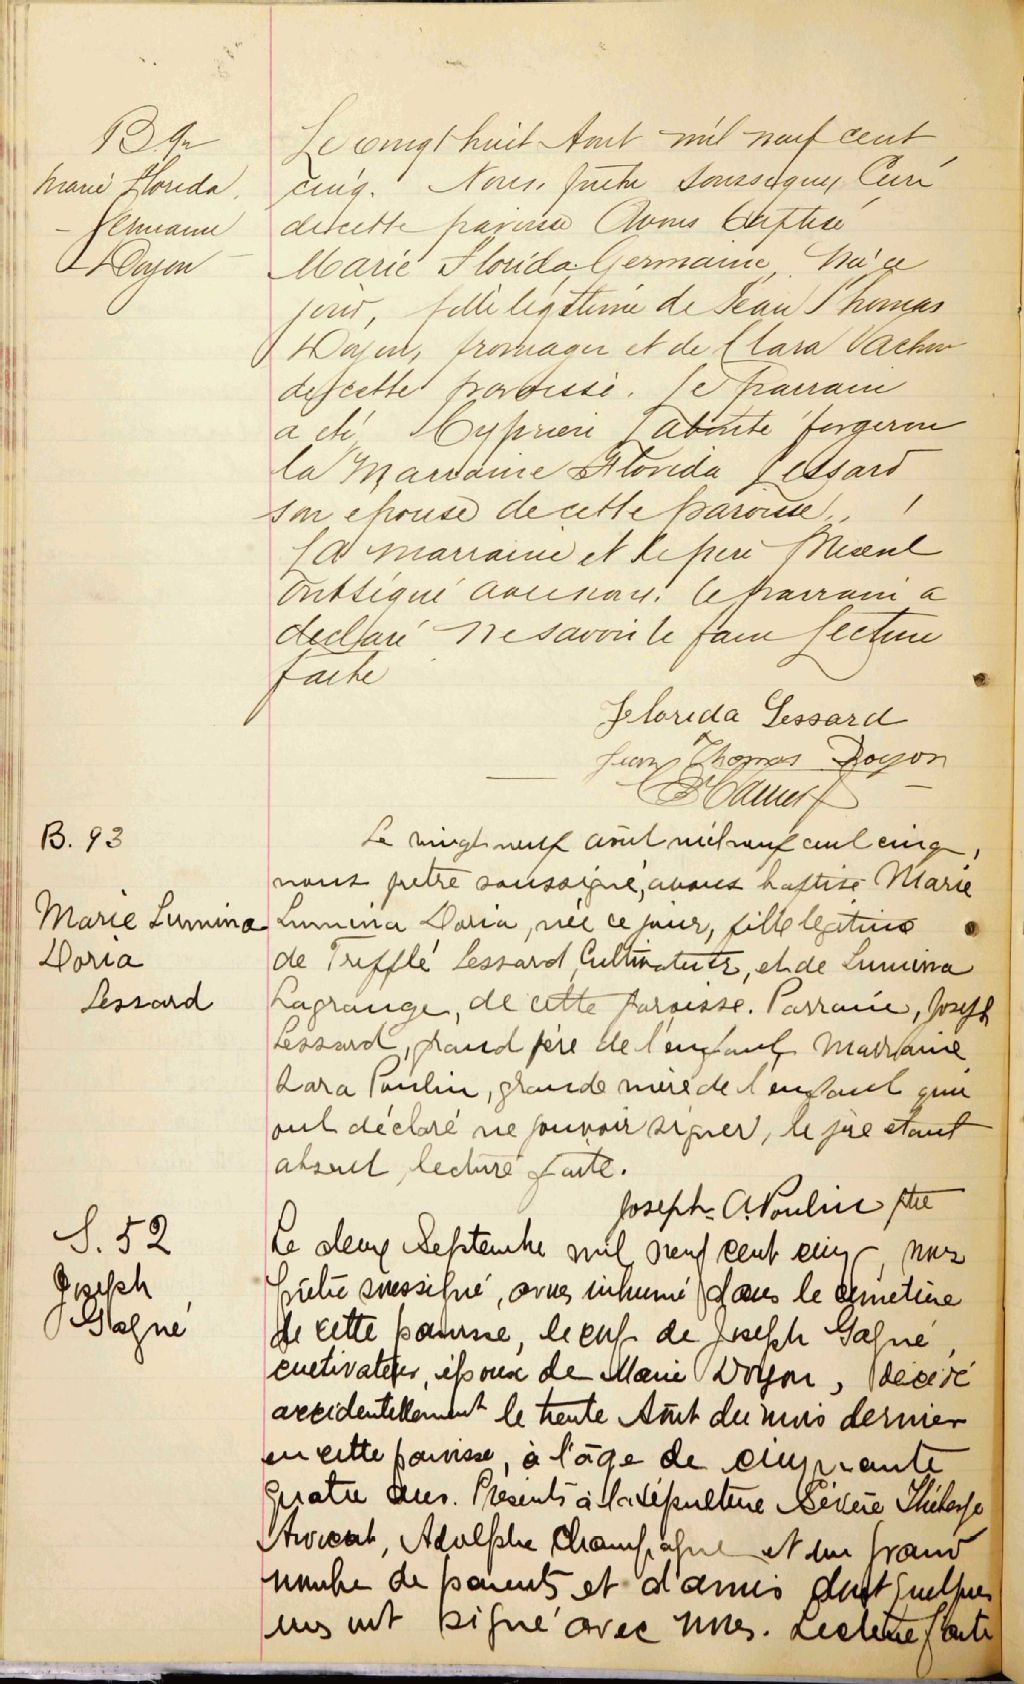 B 92
Marie Florida
Germaine
Doyon
Le vingt huit Aout mil neuf cent
cinq. Nous, prêtre soussigné, Curé
de cette paroisse Avons baptisé
Marie Florida Germaine, née ce
jour, fille légitime de Jean Thomas
Doyon, fromager et de Clara Vachon
de cette paroisse. Le parrain
a été Cyprien Labonté forgeron
la Marraine Florida Lessard
son épouse de cette paroisse.
La marraine et le père présent
ont signé avec nous. Le parrain a
déclaré ne savoir le faire Lecture
faite
Florida Lessard
Jean Thomas Doyon
B. 93
Marie Lumina
Doria
Lessard
Le vingt neuf août mil neuf cent cinq,
nous prêtre soussigné, avons baptisé Marie
Lumina Doria, née ce jour, fille légitime
de Trefflé Lessard, Cultivateur, et de Lumina
Lagrange, de cette paroisse. Parrain, Joseph
Lessard, grand père de l'enfant, Marraine
Zara Poulin, grande mère de l'enfant qui
ont déclaré ne pouvoir signer, le père étant
absent, lecture faite.
Joseph A. Poulin ptre
S. 52
Joseph
Gagné
Le deux Septembre mil neuf cent cinq, nous
prêtre soussigné, avons inhumé dans le cimetière
de cette paroisse, le corps de Joseph Gagné,
cultivateur, époux de Marie Doyon, décédé
accidentellement le trente Août du mois dernier
en cette paroisse, à l'âge de cinquante
quatre ans. Présents à la sépulture Sévère Théberge
Avocat, Adolphe Champagne et un grand
nombre de parents et d'amis dont quelques
uns ont signé avec nous. Lecture faite